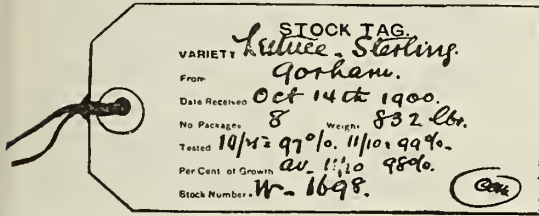 STOCK TAG.
VARIETY Lettuce - Sterling.
From Gorham.
Date Received Oct 14th 1900.
No Packages 8 Weight 832 lbs.
Tested 97%. 11/10 = 99%.
Per Cent of Growth av. 98%.
Stock Number W - 1698.